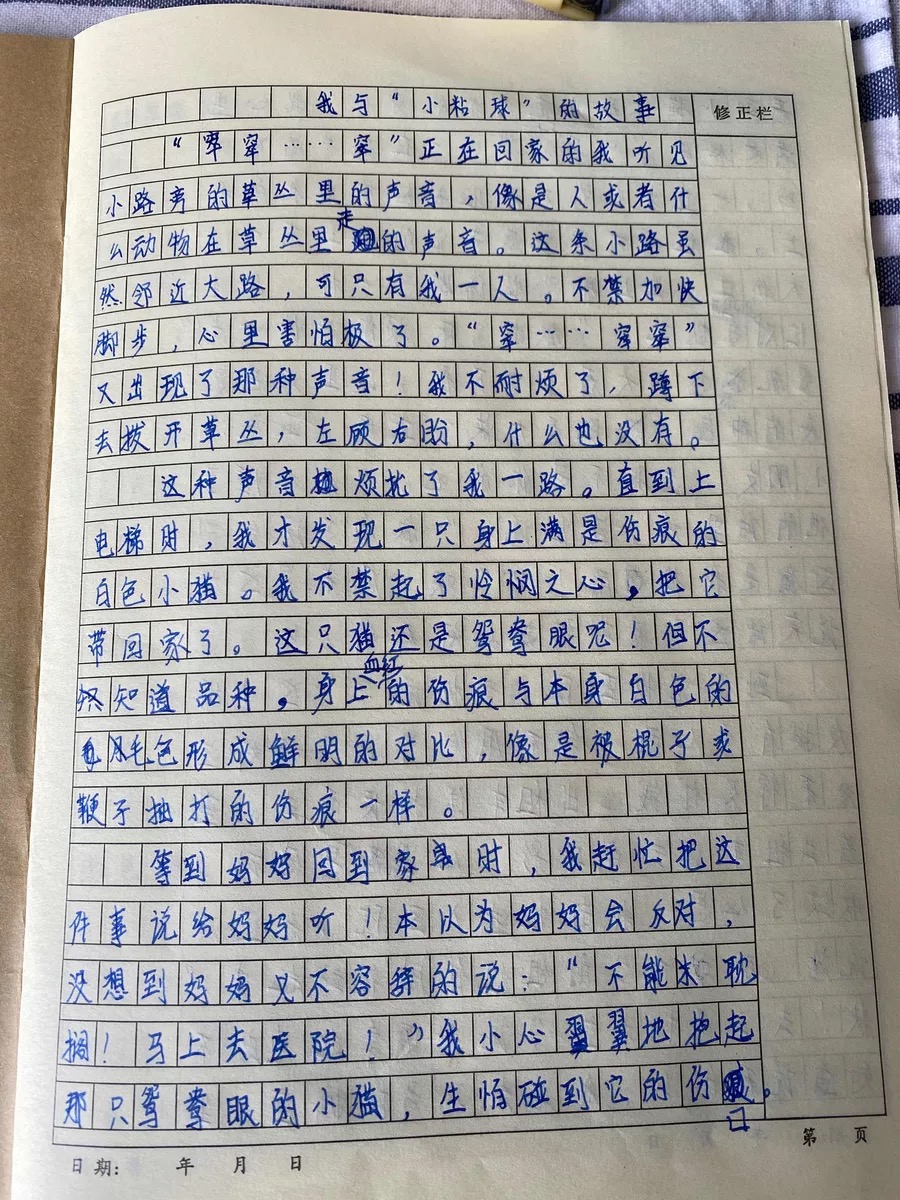 我与“小粘球”的故事
修正栏
“窣窣……窣”正在回家的我听见
小路旁的草丛里的声音，像是人或者什
么动物在草丛里走的声音。这条小路虽
然邻近大路，可只有我一人。不禁加快
脚步，心里害怕极了。“窣……窣窣”
又出现了那种声音！我不耐烦了，蹲下
去拨开草丛，左顾右盼，什么也没有。
这种声音烦扰了我一路。直到上
电梯时，我才发现一只身上满是伤痕的
白色小猫。我不禁起了怜悯之心，把它
带回家了。这只猫还是鸳鸯眼呢！但不
知道品种。身上血红的伤痕与本身白色的
毛色形成鲜明的对比，像是被棍子或
鞭子抽打的伤痕一样。
等到妈妈回到家时，我赶忙把这
件事说给妈妈听！本以为妈妈会反对，
没想到妈妈义不容辞的说：“不能未耽
搁！马上去医院！”我小心翼翼地抱起
那只鸳鸯眼的小猫，生怕碰到它的伤口。
日期： 年 月 日
第 页